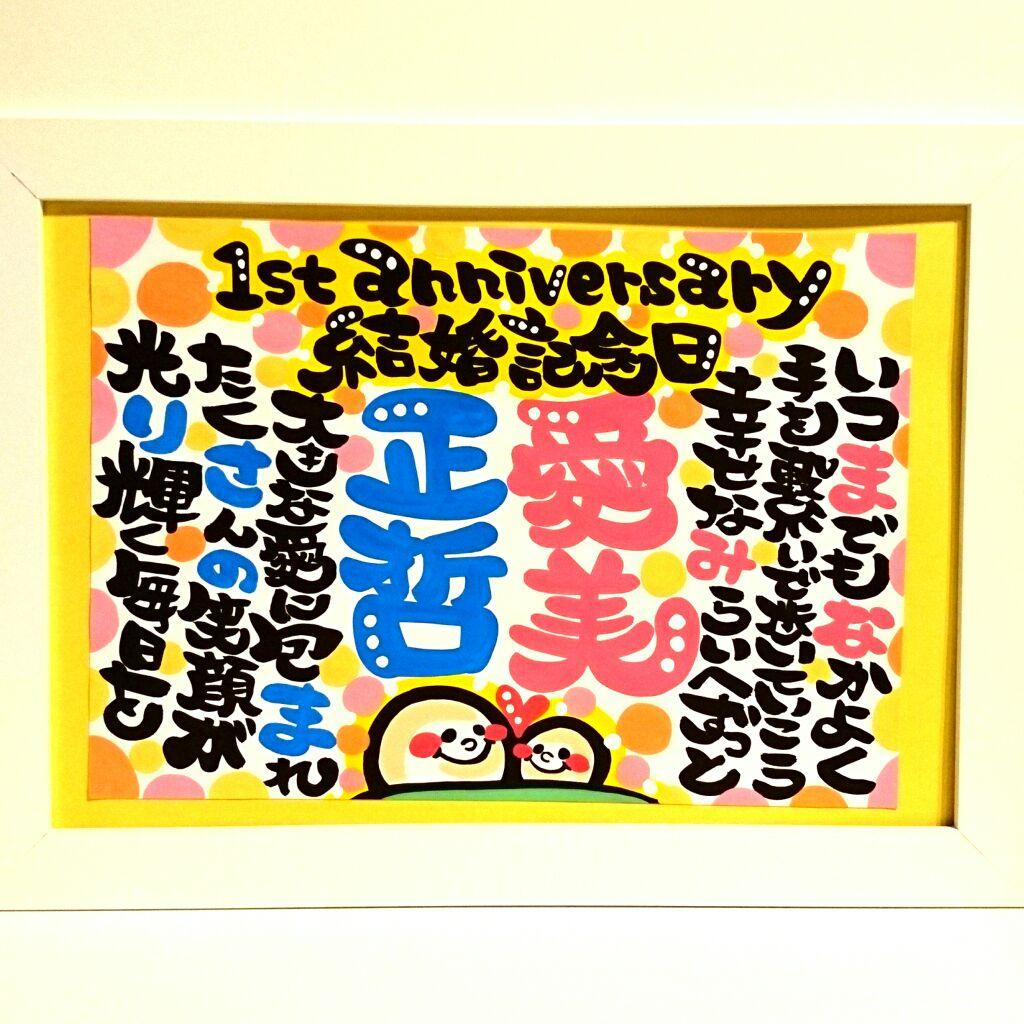 1st anniversary
結婚記念日
いつまでもなかよく
手を繋いで歩いていこう
幸せなみらいへずっと
愛美
正哲
大きな愛に包まれ
たくさんの笑顔が
光り輝く毎日を